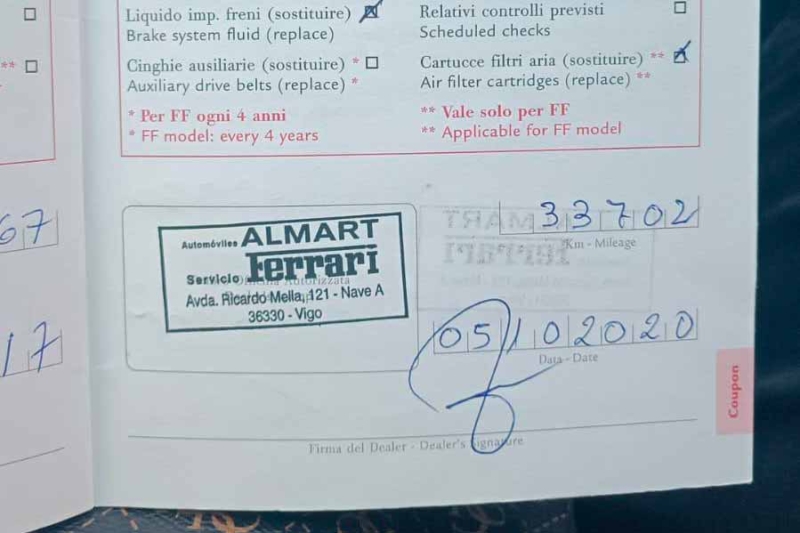 Liquido imp. freni (sostituire)
Brake system fluid (replace)
Relativi controlli previsti
Scheduled checks
** 
Cinghie ausiliarie (sostituire) *
Auxiliary drive belts (replace) *
Cartucce filtri aria (sostituire) **
Air filter cartridges (replace) **
* Per FF ogni 4 anni
* FF model: every 4 years
** Vale solo per FF
** Applicable for FF model
67
33702
Km - Mileage
Automóviles ALMART
Servicio Ferrari
Avda. Ricardo Mella, 121 - Nave A
36330 - Vigo
17
05102020
Data - Date
Coupon
Firma del Dealer - Dealer's Signature